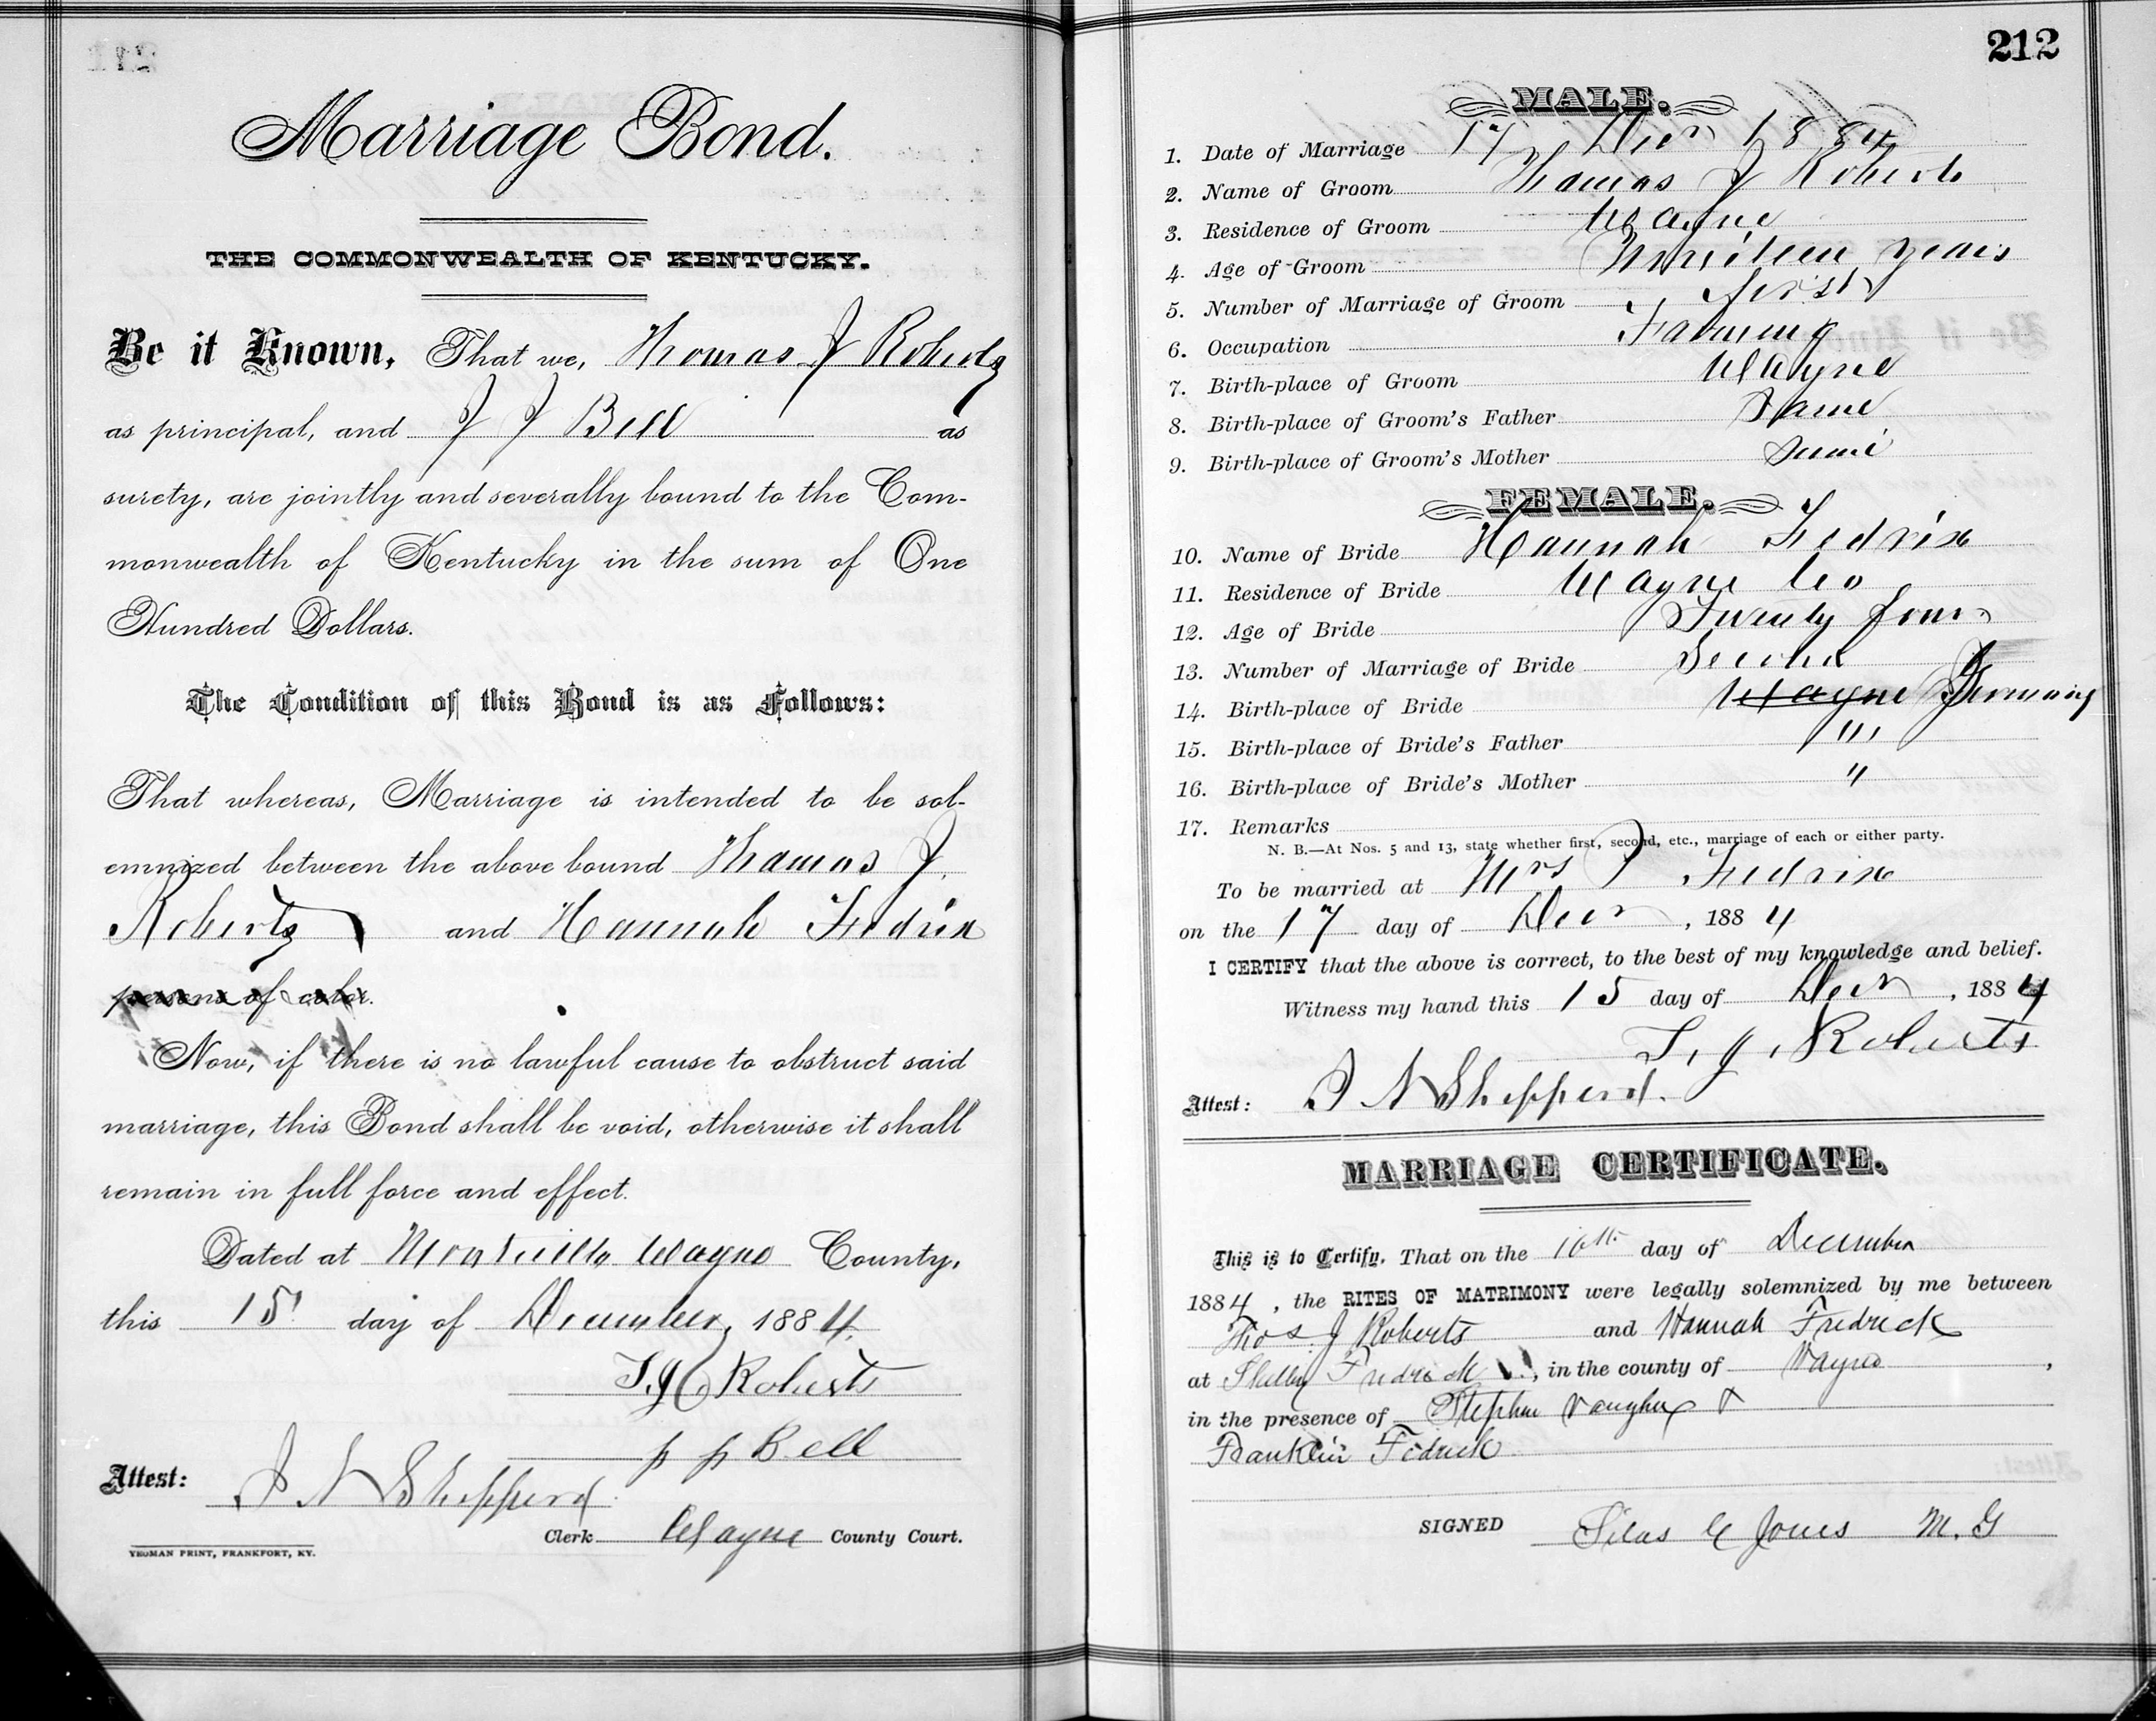 Marriage Bond.
THE COMMONWEALTH OF KENTUCKY.
Be it Known, That we, Thomas J Roberts
as principal, and J J Bell as
surety, are jointly and severally bound to the Com-
monwealth of Kentucky in the sum of One
Hundred Dollars.
The Condition of this Bond is as Follows:
That whereas, Marriage is intended to be sol-
emnized between the above bound Thomas J.
Roberts and Hannah Fedrix
persons of color.
Now, if there is no lawful cause to obstruct said
marriage, this Bond shall be void, otherwise it shall
remain in full force and effect.
Dated at Monticello Wayne County,
this 15 day of December, 1884.
T. J. Roberts
J J Bell
Attest: J N Shepperd
Clerk Wayne County Court.
YEOMAN PRINT, FRANKFORT, KY.
212
MALE.
1. Date of Marriage 17 Decr 1884
2. Name of Groom Thomas J Roberts
3. Residence of Groom Wayne
4. Age of Groom years
5. Number of Marriage of Groom first
6. Occupation Farming
7. Birth-place of Groom Wayne
8. Birth-place of Groom's Father Same
9. Birth-place of Groom's Mother Same
FEMALE.
10. Name of Bride Hannah Fedrix
11. Residence of Bride Wayne Co
12. Age of Bride Twenty four
13. Number of Marriage of Bride Second
14. Birth-place of Bride Wayne Germany
15. Birth-place of Bride's Father "
16. Birth-place of Bride's Mother "
17. Remarks
N. B.—At Nos. 5 and 13, state whether first, second, etc., marriage of each or either party.
To be married at Mrs Fedrix
on the 17 day of Decr, 1884
I CERTIFY that the above is correct, to the best of my knowledge and belief.
Witness my hand this 15 day of Decr, 1884
T. J. Roberts
Attest: J N Shepperd.
MARRIAGE CERTIFICATE.
This is to Certify, That on the day of December
1884, the RITES OF MATRIMONY were legally solemnized by me between
Thos. J Roberts and Hannah Fredrick
at Shelby Fredrick, in the county of Wayne,
in the presence of Stephen Vaughn
Franklin Fedrick
SIGNED Silas C Jones M. G